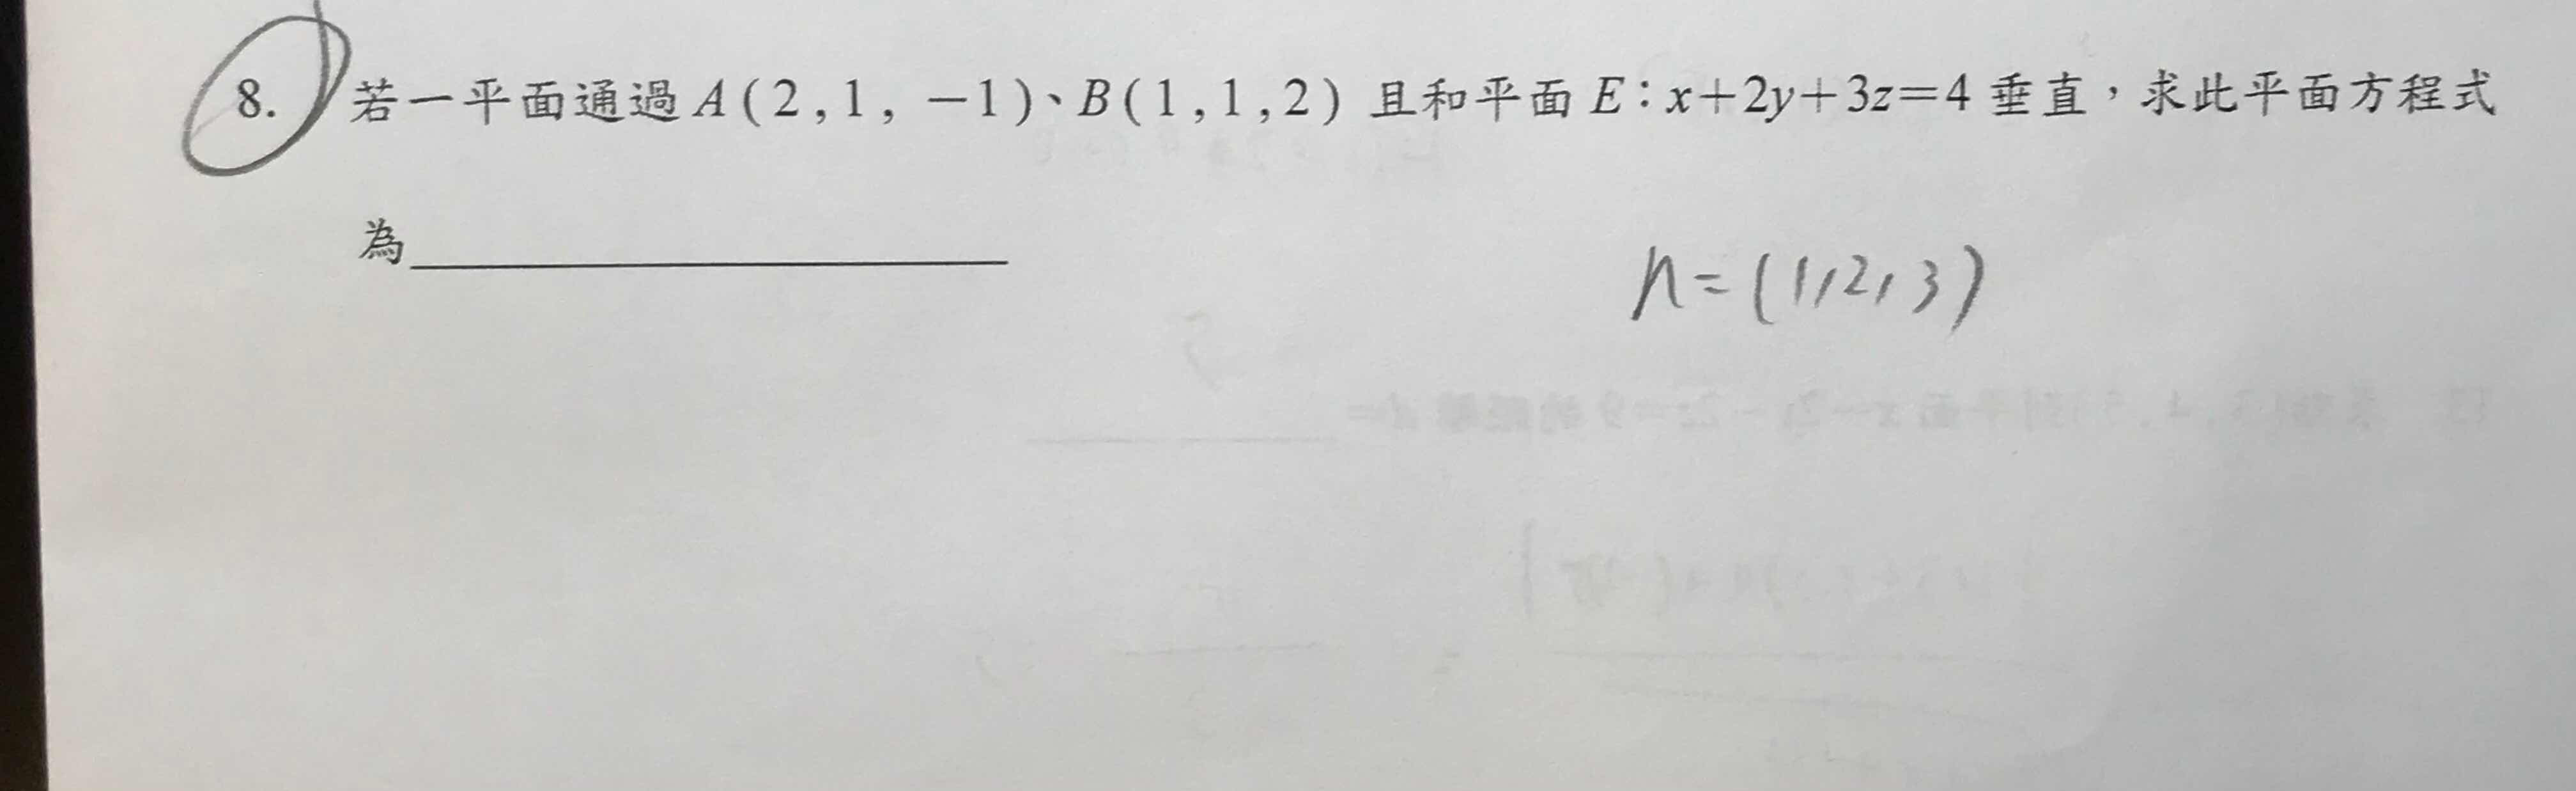 8. 若一平面通過 A(2,1,-1)、B(1,1,2) 且和平面 E:x+2y+3z=4 垂直，求此平面方程式
為
n=(1,2,3)